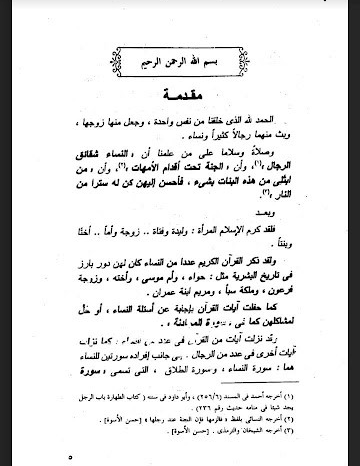 بسم الله الرحمن الرحيم
مقدمة
الحمد لله الذى خلقنا من نفس واحدة ، وجعل منها زوجها ،
وبث منهما رجالاً كثيراً ونساء .
وصلاةً وسلاما على من علمنا أن « النساء شقائق
الرجال »(١)، وأن « الجنة تحت أقدام الأمهات »(٢)، وأن « من
ابتلى من هذه البنات بشىء ، فأحسن إليهن كن له سترا من
النار »(٣).
وبعد
فلقد كرم الإسلام المرأة : وليدة وفتاة .. زوجة وأماً .. أختاً
وبنتاً .
ولقد ذكر القرآن الكريم عدداً من النساء كان لهن دور بارز
فى تاريخ البشرية مثل : حواء ، وأم موسى ، وأخته ، وزوجة
فرعون ، وملكة سبأ ، ومريم ابنة عمران .
كما حفلت آيات القرآن بإجابة عن أسئلة النساء ، أو حل
لمشاكلهن كما فى سورة المجادلة .
وقد نزلت آيات من القرآن فى عدد من النساء ، كما نزلت
آيات أخرى فى عدد من الرجال . إلى جانب إفراده سورتين للنساء
هما : سورة النساء ، وسورة الطلاق ، التى تسمى « سورة
(١) أخرجه أحمد فى المسند (٢٥٦/٦) ، وأبو داود فى سننه ( كتاب الطهارة باب الرجل
يجد شيئا فى منامه حديث رقم ٢٣٦) .
(٢) أخرجه النسائى بلفظ « فالزمها فإن الجنة عند رجلها » [حسن الأسوة] .
(٣) أخرجه الشيخان والترمذى . [حسن الأسوة] .
٥